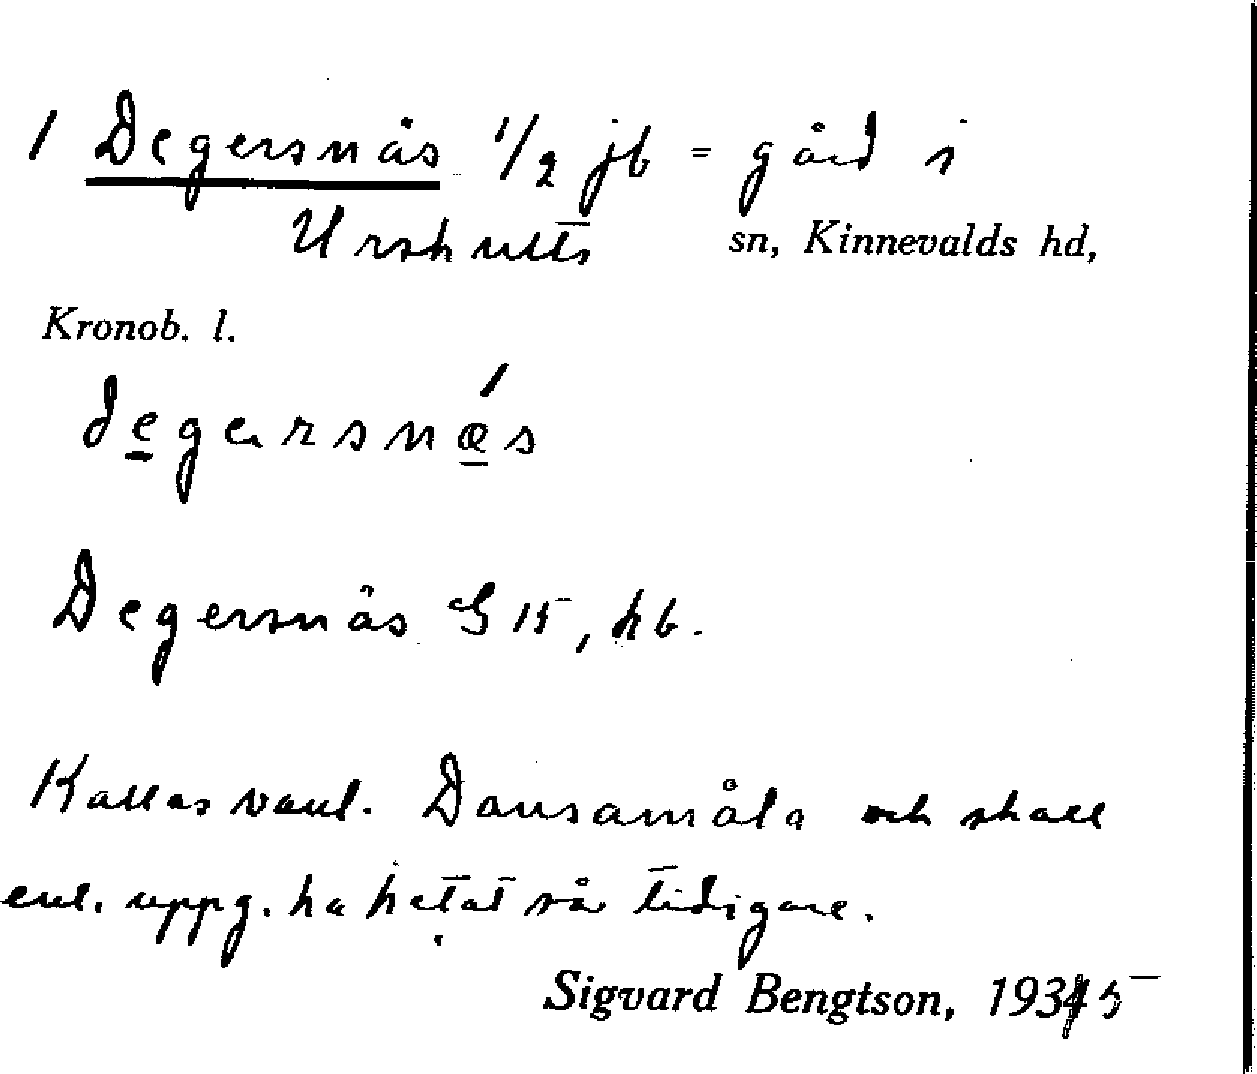 1 Degersnäs 1/2 jb = gård i
Urshults sn, Kinnevalds hd,
Kronob. l.
degersnǽs
Degersnäs G 15, hb.
Kallas vanl. Dansamåla och skall
enl. uppg. ha hetat så tidigare.
Sigvard Bengtson, 1935